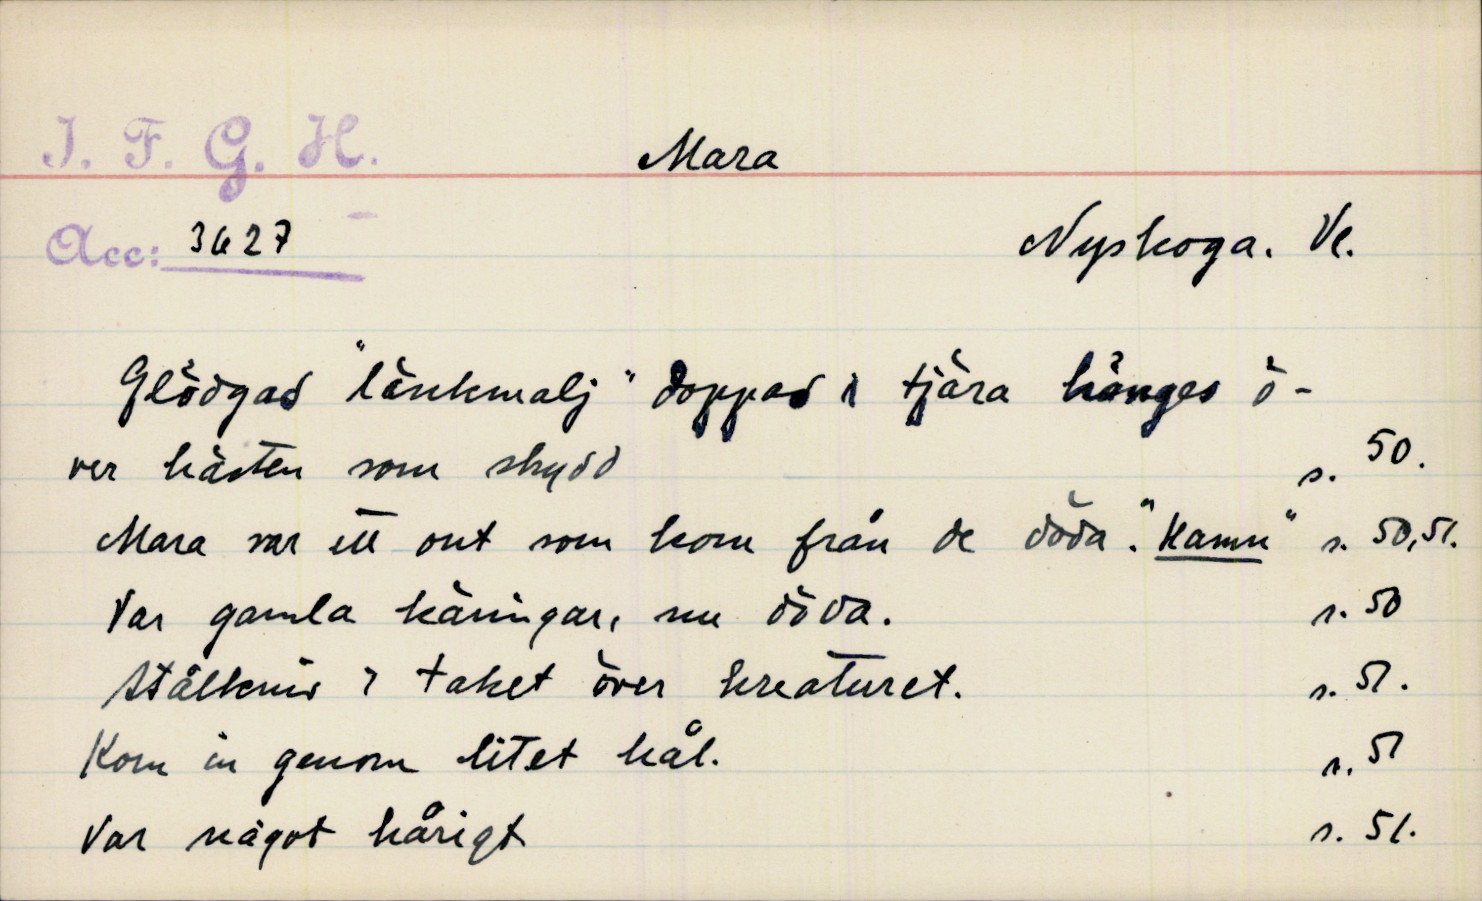 I. F. G. H.
Mara
Acc: 3627
Nyskoga. Vl.
Glödgad "länkmalj" doppad i tjära hänges ö-
ver hästen som skydd s. 50.
Mara var ett ont som kom från de döda. "Hamn" s. 50, 51.
Var gamla käringar, nu döda. s. 50
Stålkniv i taket över kreaturet. s. 51.
Kom in genom litet hål. s. 51
Var något hårigt s. 51.